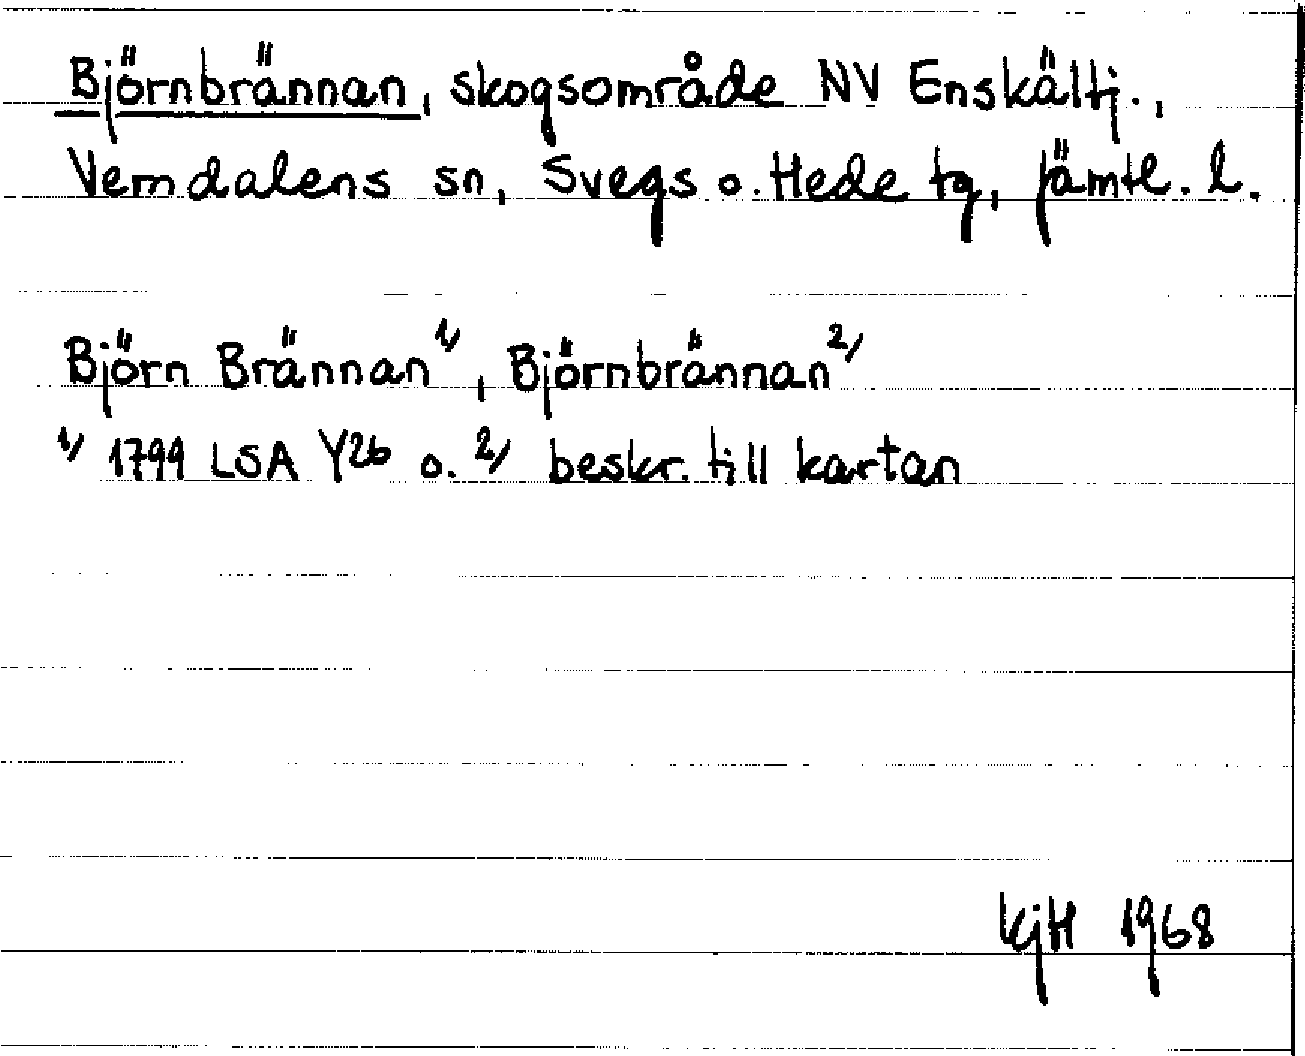 Björnbrännan, skogsområde NV Enskältj.,
Vemdalens sn, Svegs o. Hede tg, Jämtl. l.
Björn Brännan 1/, Björnbrännan 2/
1/ 1799 LSA Y26 o. 2/ beskr. till kartan
KjH 1968